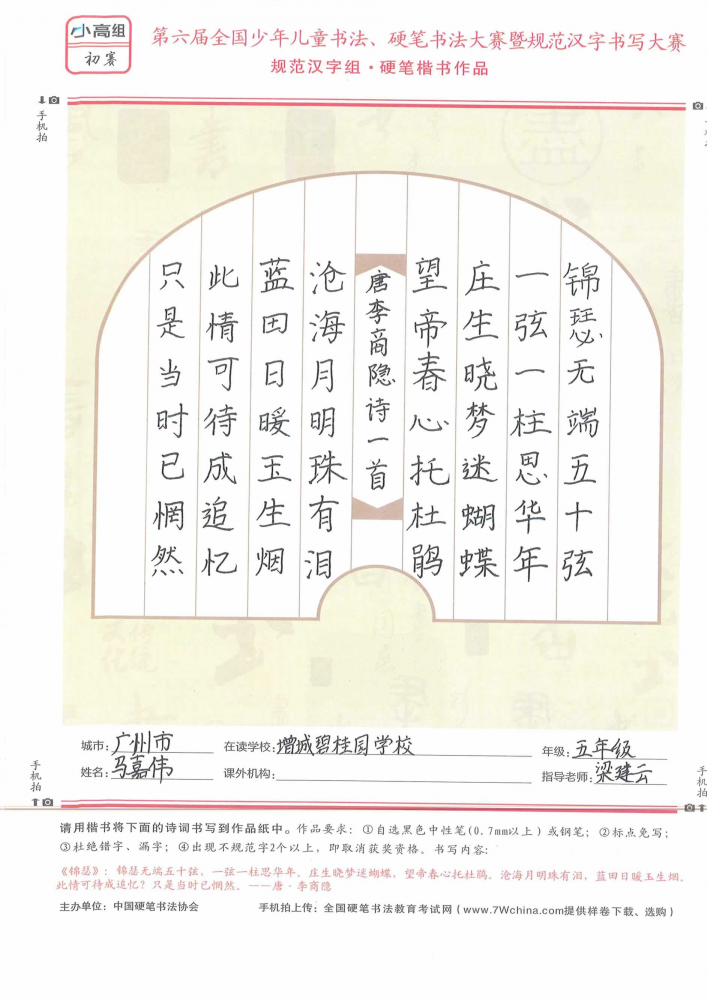 小高组
初赛
第六届全国少年儿童书法、硬笔书法大赛暨规范汉字书写大赛
规范汉字组·硬笔楷书作品
手机拍
锦瑟无端五十弦
一弦一柱思华年
庄生晓梦迷蝴蝶
望帝春心托杜鹃
唐李商隐诗一首
沧海月明珠有泪
蓝田日暖玉生烟
此情可待成追忆
只是当时已惘然
城市：广州市 在读学校：增城碧桂园学校 年级：五年级
姓名：马嘉伟 课外机构： 指导老师：梁建云
手机拍
手机拍
请用楷书将下面的诗词书写到作品纸中。作品要求：①自选黑色中性笔(0.7mm以上）或钢笔；②标点免写；
③杜绝错字、漏字；④出现不规范字2个以上，即取消获奖资格。书写内容：
《锦瑟》：锦瑟无端五十弦，一弦一柱思华年。庄生晓梦迷蝴蝶，望帝春心托杜鹃。沧海月明珠有泪，蓝田日暖玉生烟。
此情可待成追忆？只是当时已惘然。——唐·李商隐
主办单位：中国硬笔书法协会 手机拍上传：全国硬笔书法教育考试网（www.7Wchina.com提供样卷下载、选购）